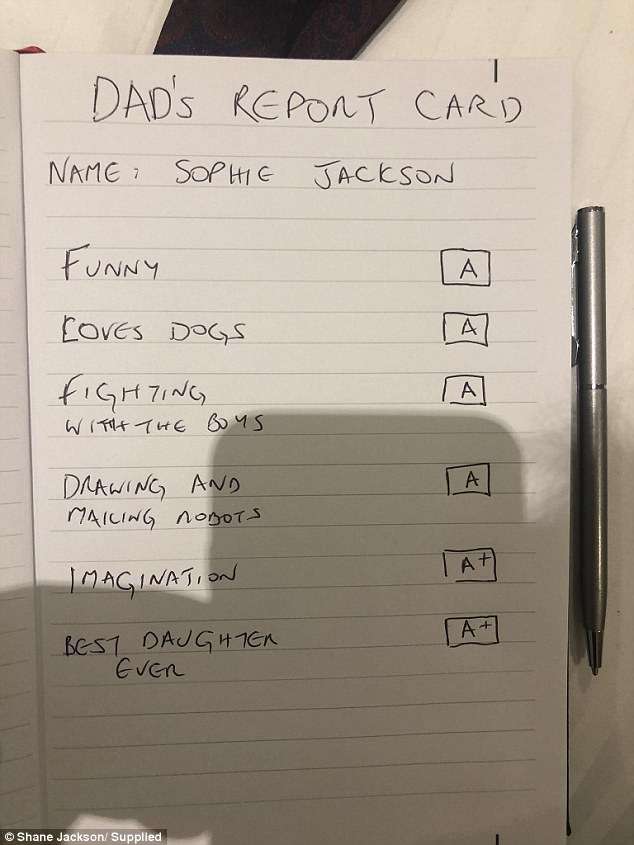 DAD'S REPORT CARD
NAME: SOPHIE JACKSON
FUNNY A
LOVES DOGS A
FIGHTING A
WITH THE BOYS
DRAWING AND A
MAKING ROBOTS
IMAGINATION A+
BEST DAUGHTER A+
EVER
© Shane Jackson/ Supplied